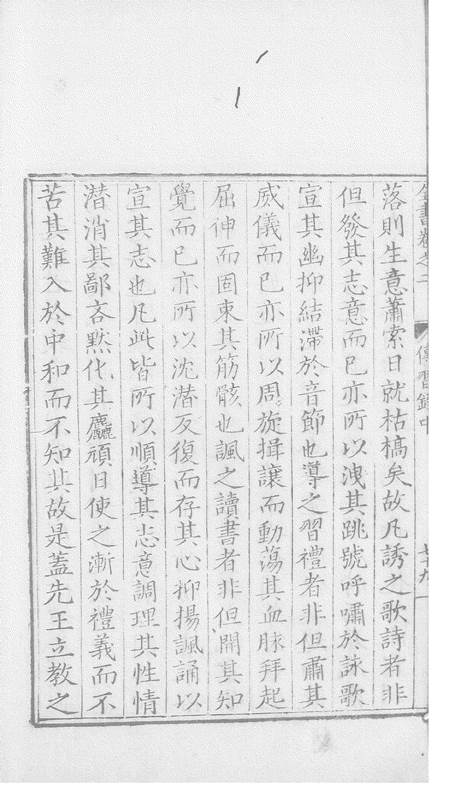 全書卷之二　傳習錄中　七十九
落則生意蕭索日就枯槁矣故凡誘之歌詩者非
但發其志意而已亦所以洩其跳號呼嘯於詠歌
宣其幽抑結滯於音節也導之習禮者非但肅其
威儀而已亦所以周旋揖讓而動蕩其血脉拜起
屈伸而固束其筋骸也諷之讀書者非但開其知
覺而已亦所以沈潛反復而存其心抑揚諷誦以
宣其志也凡此皆所以順導其志意調理其性情
潛消其鄙吝黙化其麤頑日使之漸於禮義而不
苦其難入於中和而不知其故是蓋先王立教之